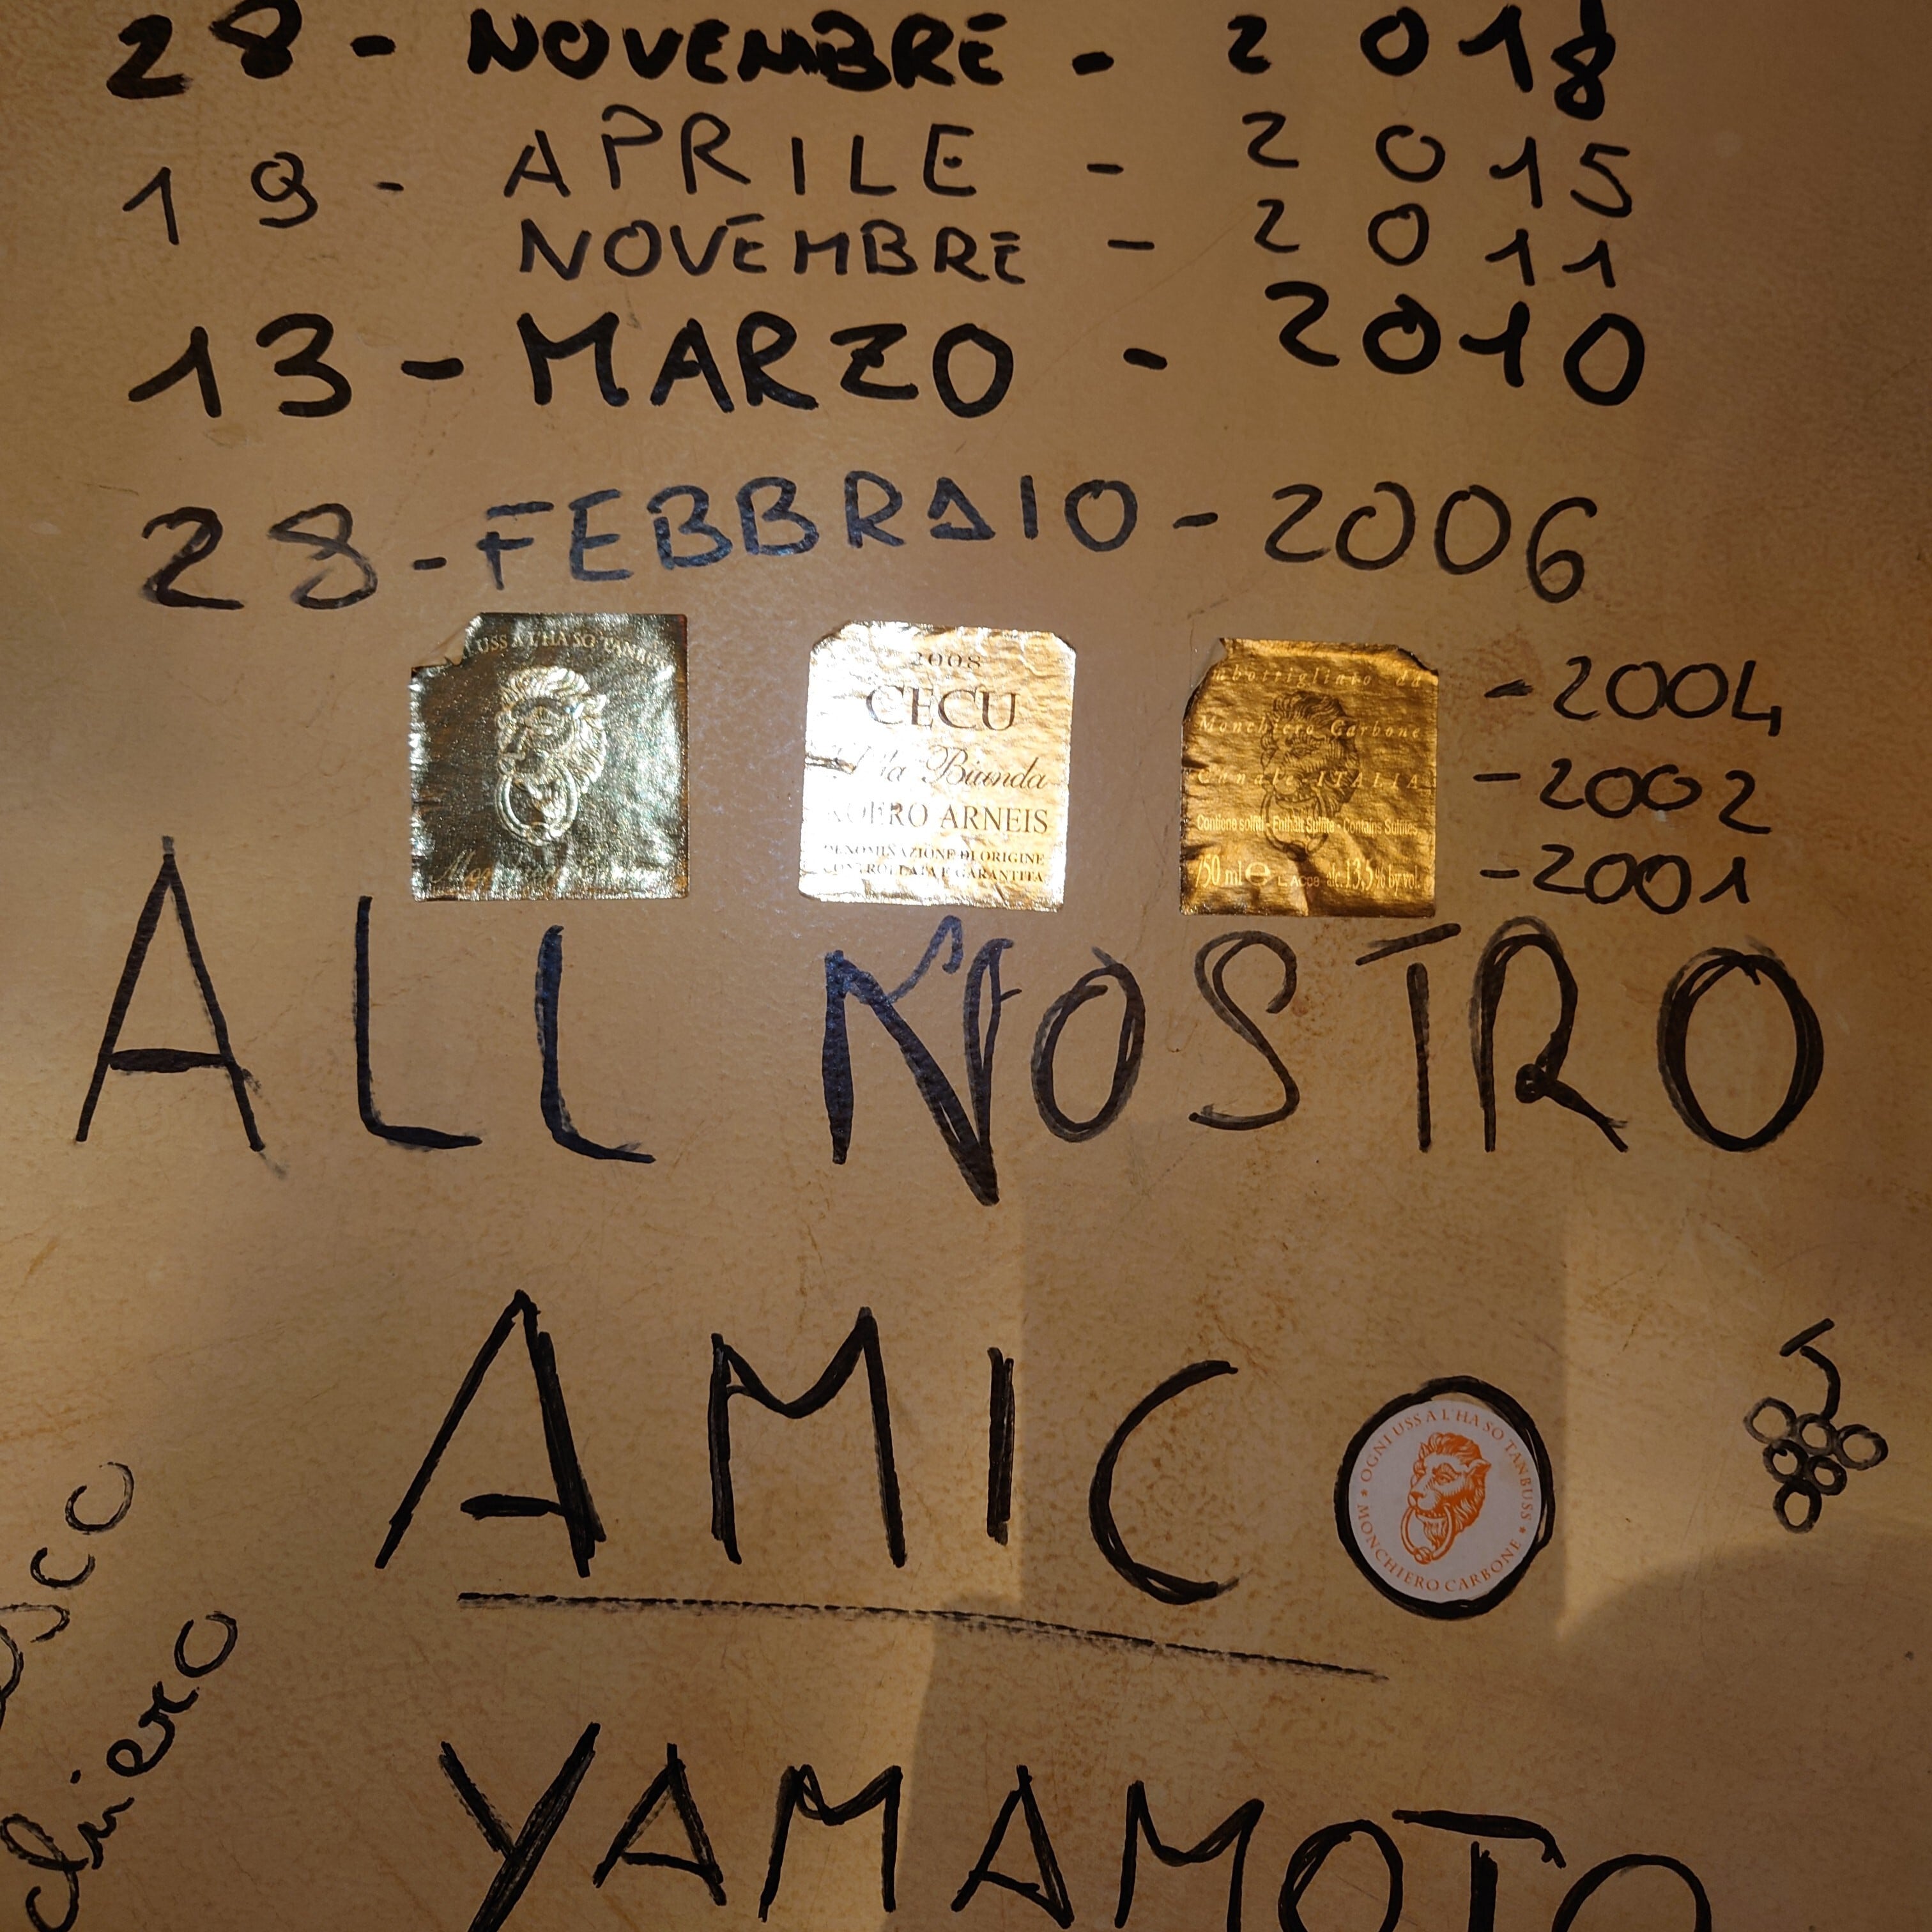 28 - NOVEMBRE - 2018
19 - APRILE - 2015
NOVEMBRE - 2011
13 - MARZO - 2010
28 - FEBBRAIO - 2006
USS A L'HA SO TANBUSS
2008
CECU
Biunda
ROERO ARNEIS
DENOMINAZIONE DI ORIGINE
CONTROLLATA E GARANTITA
Imbottigliato da
Monchiero Carbone
Canale - ITALIA
Contiene solfiti - Enthält Sulfite - Contains Sulfites
750 ml e L.AC08 alc. 13,5% by vol.
- 2004
- 2002
- 2001
ALL NOSTRO
AMICO
OGNI USS A L'HA SO TANBUSS * MONCHIERO CARBONE *
YAMAMOTO